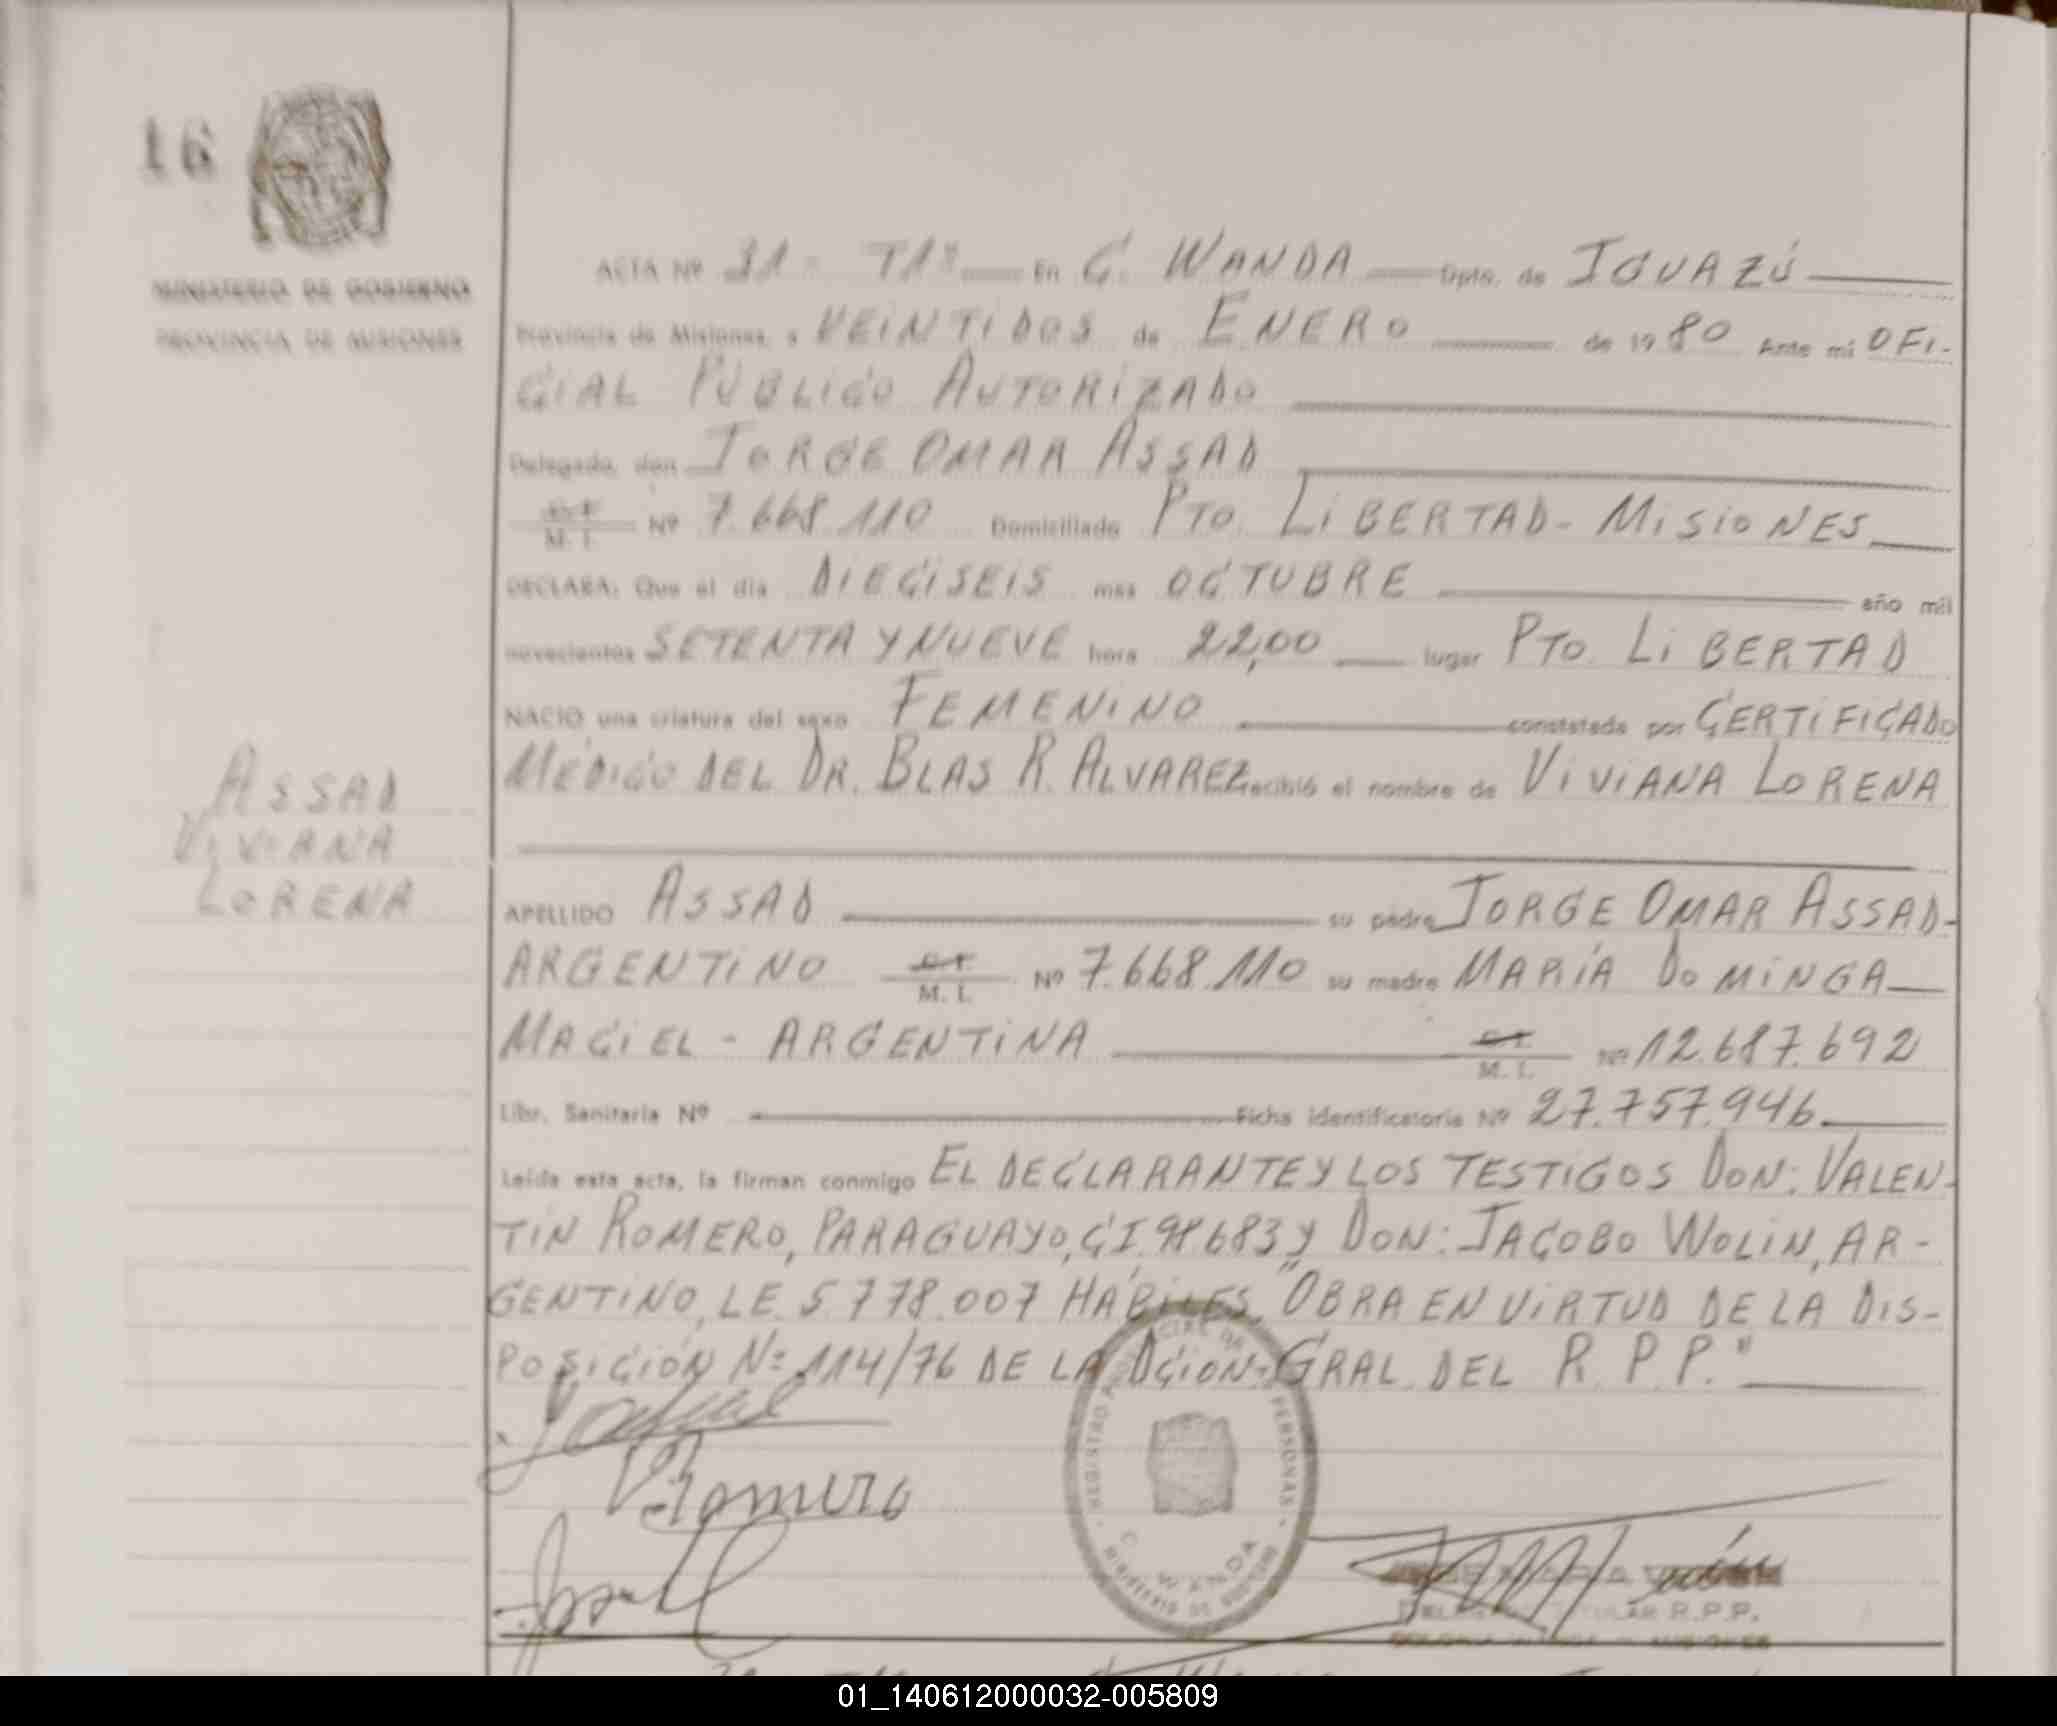 16
MINISTERIO DE GOBIERNO
PROVINCIA DE MISIONES
ACTA Nº 31 - T1º En C. WANDA Dpto. de IGUAZÚ
Provincia de Misiones, a VEINTIDOS de ENERO de 1980 Ante mi OFI-
CIAL PÚBLICO AUTORIZADO
Delegado, don JORGE OMAR ASSAD
C. I. M. I. Nº 7.668.110 Domiciliado PTO. LIBERTAD - MISIONES
DECLARA: Que el día DIECISEIS mes OCTUBRE año mil
novecientos SETENTA Y NUEVE hora 22,00 lugar PTO. LIBERTAD
NACIO una criatura del sexo FEMENINO constatada por CERTIFICADO
MÉDICO DEL DR. BLAS R. ALVAREZ recibió el nombre de VIVIANA LORENA
ASSAD
VIVIANA
LORENA
APELLIDO ASSAD su padre JORGE OMAR ASSAD-
ARGENTINO C. I. M. I. Nº 7.668.110 su madre MARÍA DOMINGA
MACIEL - ARGENTINA C. I. M. I. Nº 12.687.692
Libr. Sanitaria Nº Ficha identificatoria Nº 27.757.946
Leída esta acta, la firman conmigo EL DECLARANTE Y LOS TESTIGOS DON: VALEN-
TÍN ROMERO, PARAGUAYO, CI. 98683 y DON: JACOBO WOLIN, AR-
GENTINO, LE. 5.778.007 HÁBILES. "OBRA EN VIRTUD DE LA DIS-
POSICIÓN Nº 114/76 DE LA DCION. GRAL. DEL R. P. P."
V. Romero
REGISTRO PROVINCIAL DE LAS PERSONAS
C. WANDA
MINISTERIO DE GOBIERNO
DELEGADO TITULAR R.P.P.
COLONIA WANDA - MISIONES
01_140612000032-005809